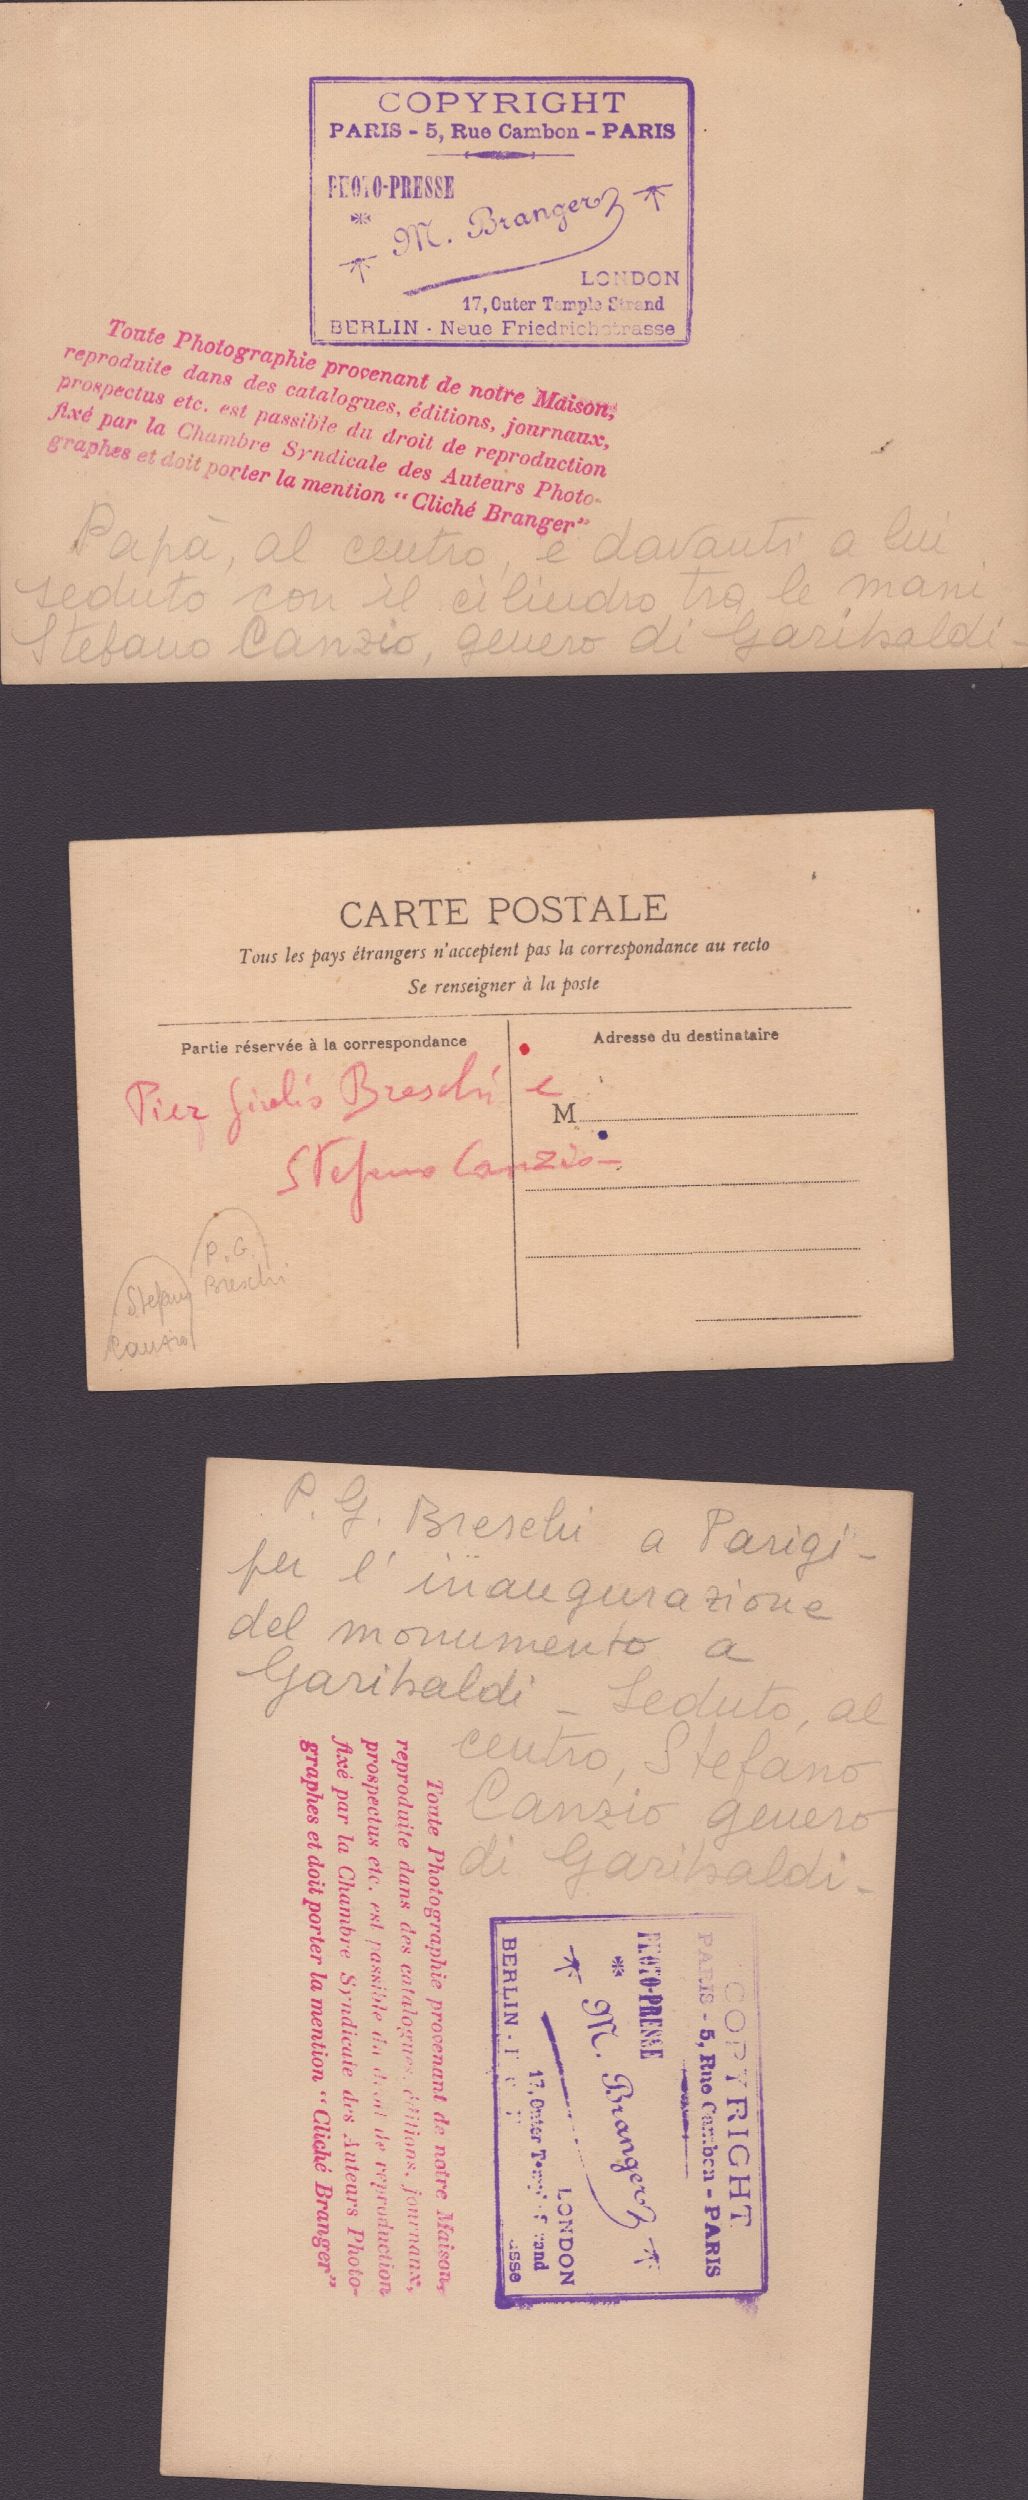 COPYRIGHT
PARIS - 5, Rue Cambon - PARIS
PHOTO-PRESSE
M. Branger
LONDON
17, Outer Temple Strand
BERLIN - Neue Friedrichstrasse
Toute Photographie provenant de notre Maison,
reproduite dans des catalogues, éditions, journaux,
prospectus etc. est passible du droit de reproduction
fixé par la Chambre Syndicale des Auteurs Photo-
graphes et doit porter la mention “Cliché Branger”
Papà, al centro, e davanti a lui
seduto con il cilindro tra le mani
Stefano Canzio, genero di Garibaldi -
CARTE POSTALE
Tous les pays étrangers n'acceptent pas la correspondance au recto
Se renseigner à la poste
Partie réservée à la correspondance
Adresse du destinataire
Pier Giulio Breschi e
M
Stefano Canzio -
P. G.
Breschi
Stefano
Canzio
P. G. Breschi a Parigi -
per l'inaugurazione
del monumento a
Garibaldi - Seduto, al
centro, Stefano
Canzio genero
di Garibaldi -
Toute Photographie provenant de notre Maison,
reproduite dans des catalogues, éditions, journaux,
prospectus etc. est passible du droit de reproduction
fixé par la Chambre Syndicale des Auteurs Photo-
graphes et doit porter la mention “Cliché Branger”
COPYRIGHT
PARIS - 5, Rue Cambon - PARIS
PHOTO-PRESSE
M. Branger
LONDON
17, Outer Temple Strand
BERLIN -